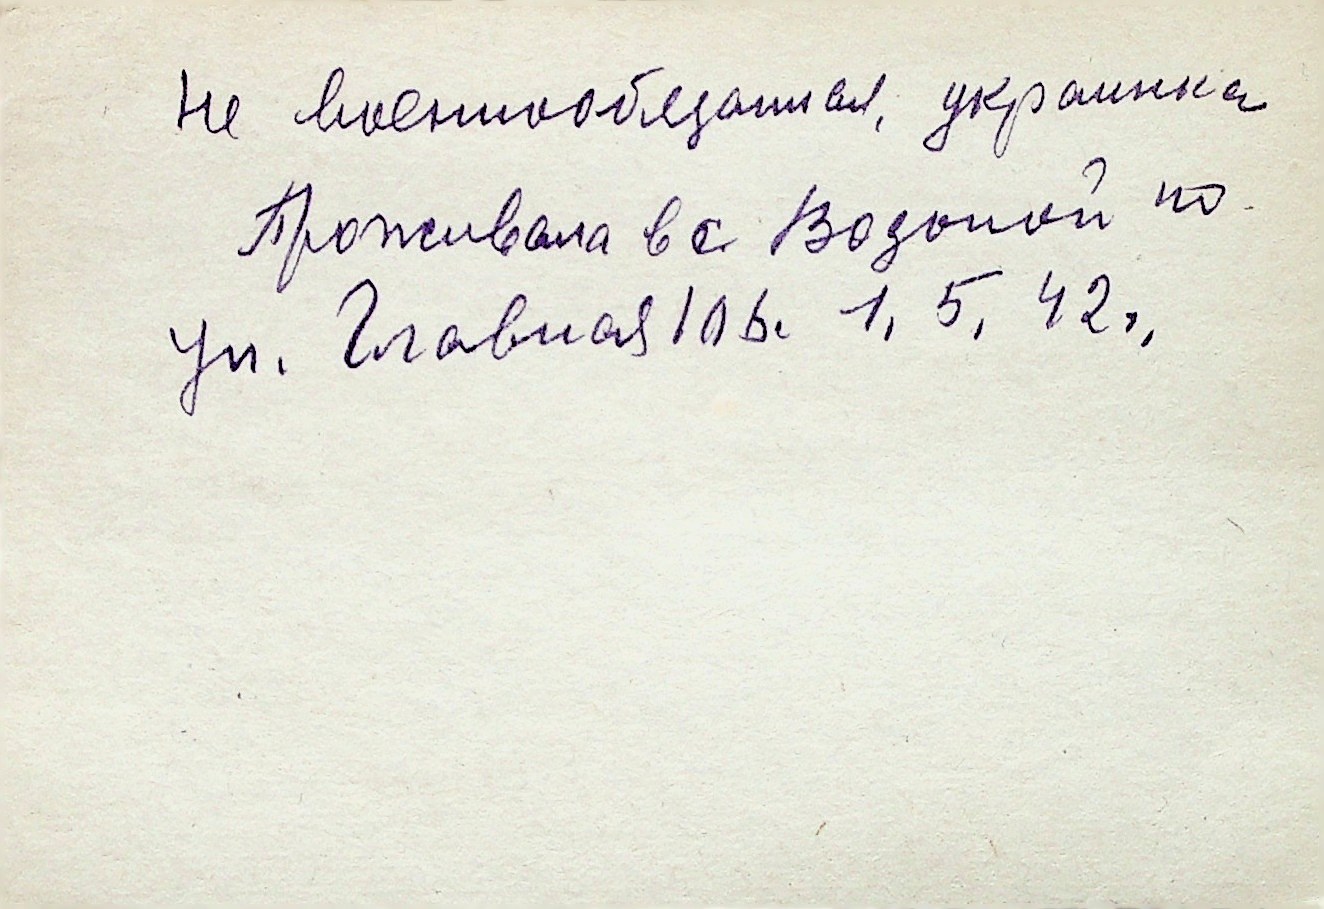 Не военнообязанная, украинка
Проживала в с. Водопой по
ул. Главная 1.5.42 г.,